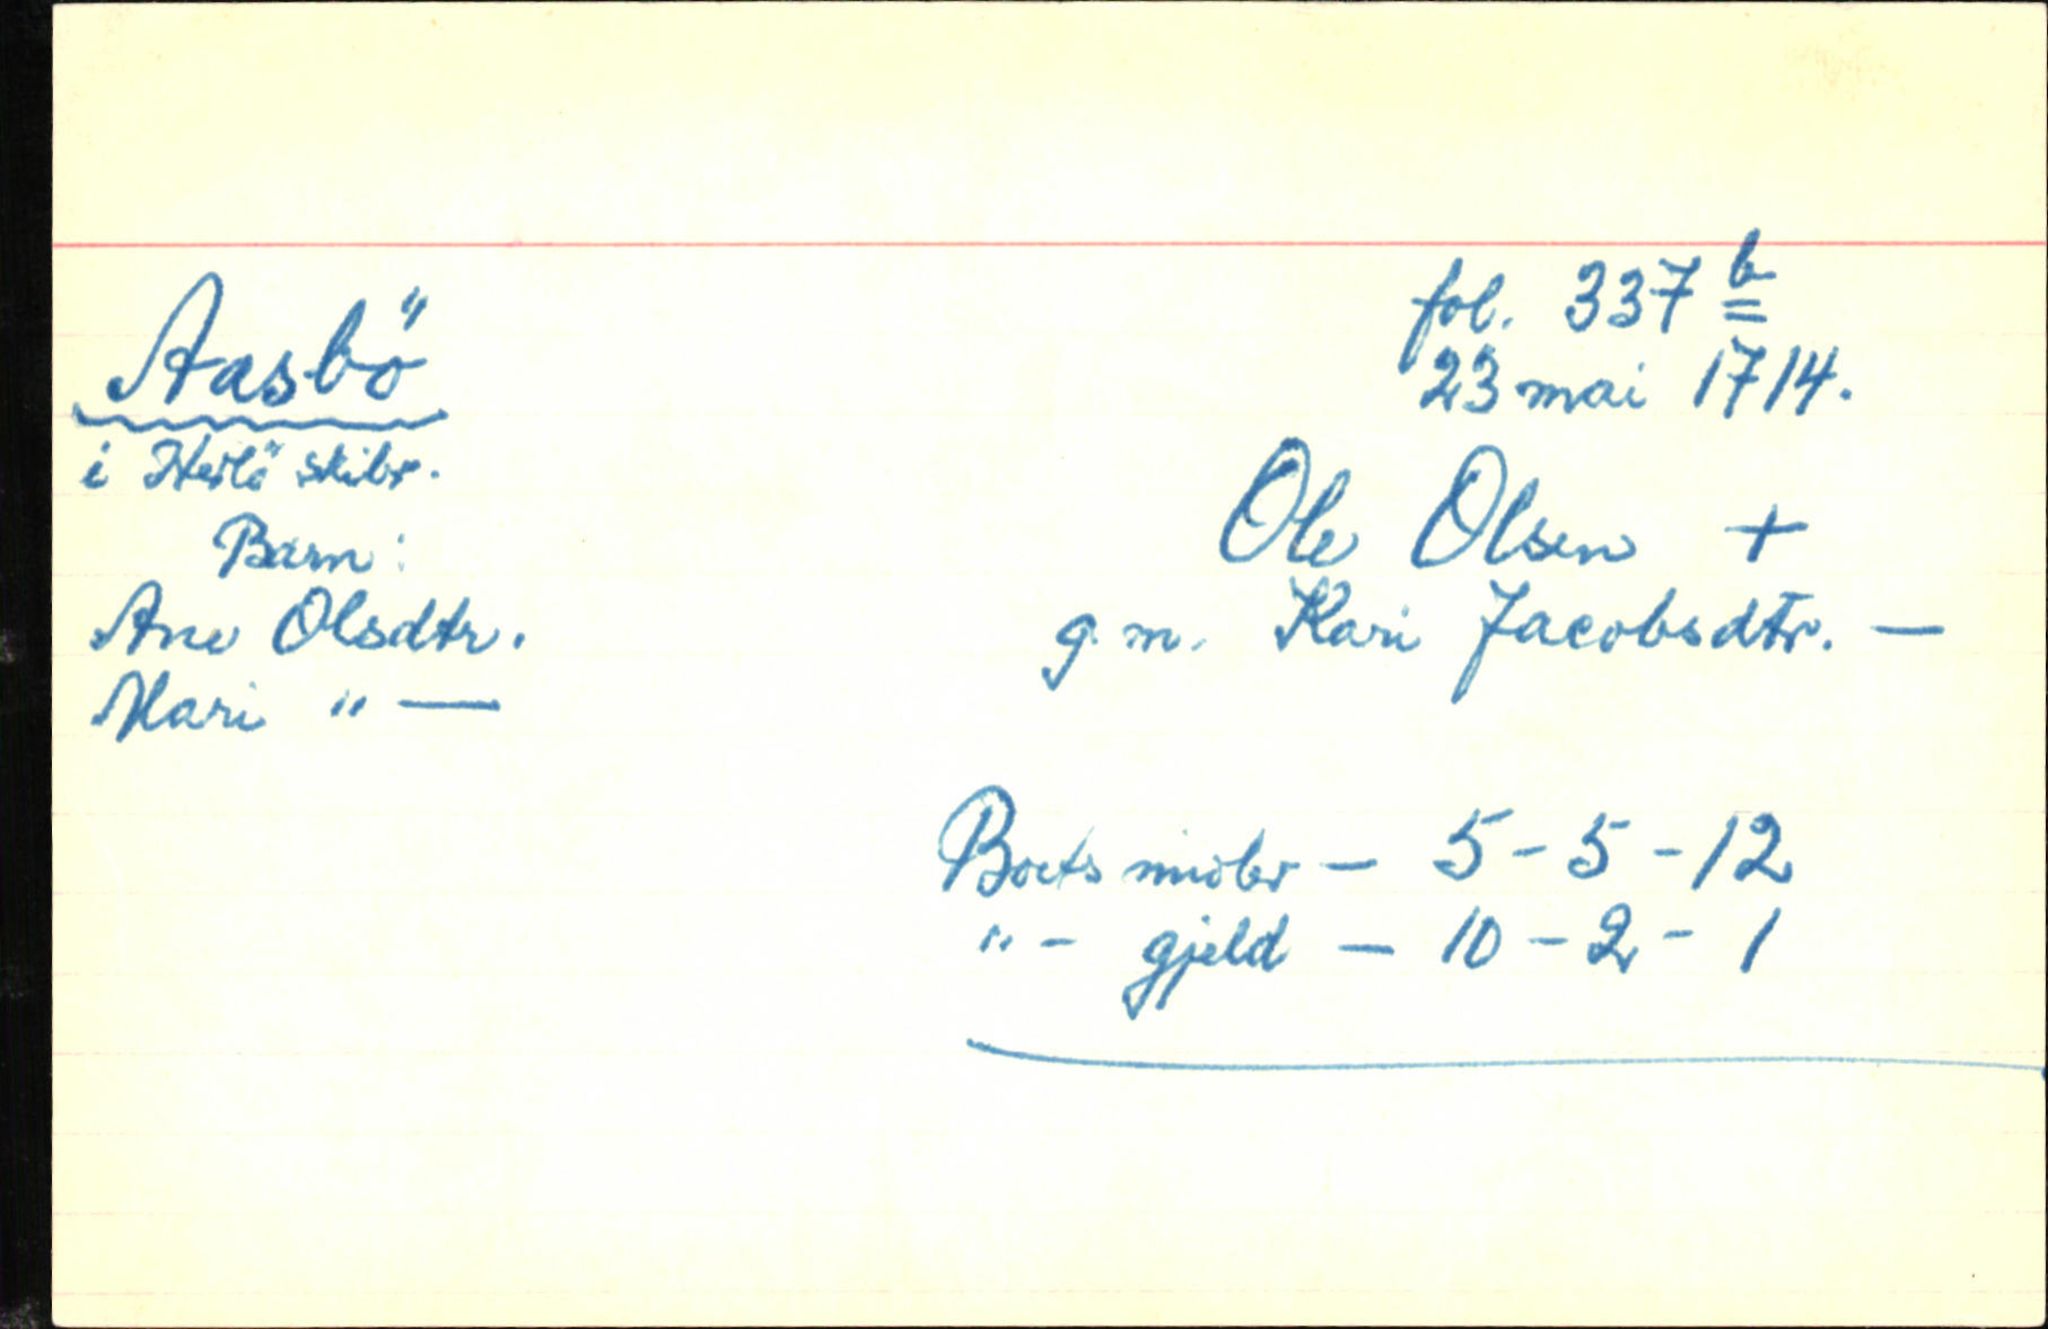 fol. 337 b
23 mai 1714.
Aasbö
i Herlö skibr.
Barn:
Ane Olsdtr.
Mari " —
Ole Olsen +
g. m. Kari Jacobsdtr. —
Boets midler — 5 - 5 - 12
" - gjeld — 10 - 2 - 1